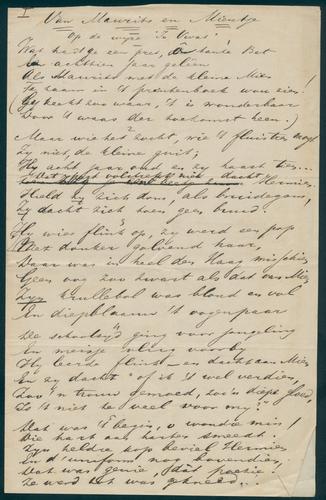 I
Van Maurits en Mientje
Op de wijze "Io Vivat"!
Was het ge een pret, tante Bet
achttien jaar geleen
Als Maurits met de kleine Mies
Te zaam in 't prentenboek wou zien!
(Gij kent hoe waar, 't is wonderbaar
Door 't waas der toekomst heen.)
Maar wie het zocht, wie 't fluistren mogt
Zij niet, de kleine guit;
Hij acht jaar oud en zij haast zes
dacht Hermies
Hield hij zich dom, als bruidegom,
Zij dacht zich toen geen bruid!
Hij wies flink op, zij werd een pop
Met donker golvend haar,
Daar was in heel den Haag misschien
Geen oog zoo zwart als dat van Mies
Zijn krullebol was blond en vol
En diepblauw 't oogenpaar
De schooltijd ging voor jongeling
En meisje vlug voorbij
Hij leerde flink en dacht aan Mies
En zij dacht "of ik 't wel verdien,
Zoo'n trouw gemoed, zoo'n diepe gloed,
Is 't niet te veel voor mij?"
Dat was 't begin, o wondre min!
Die hart aan hartes smeedt.
Zijn heldre kop beviel Hermies
En d'uniform nog bovendien,
Dat was genie, dat poezie!
Ze werd tot was gekneed...